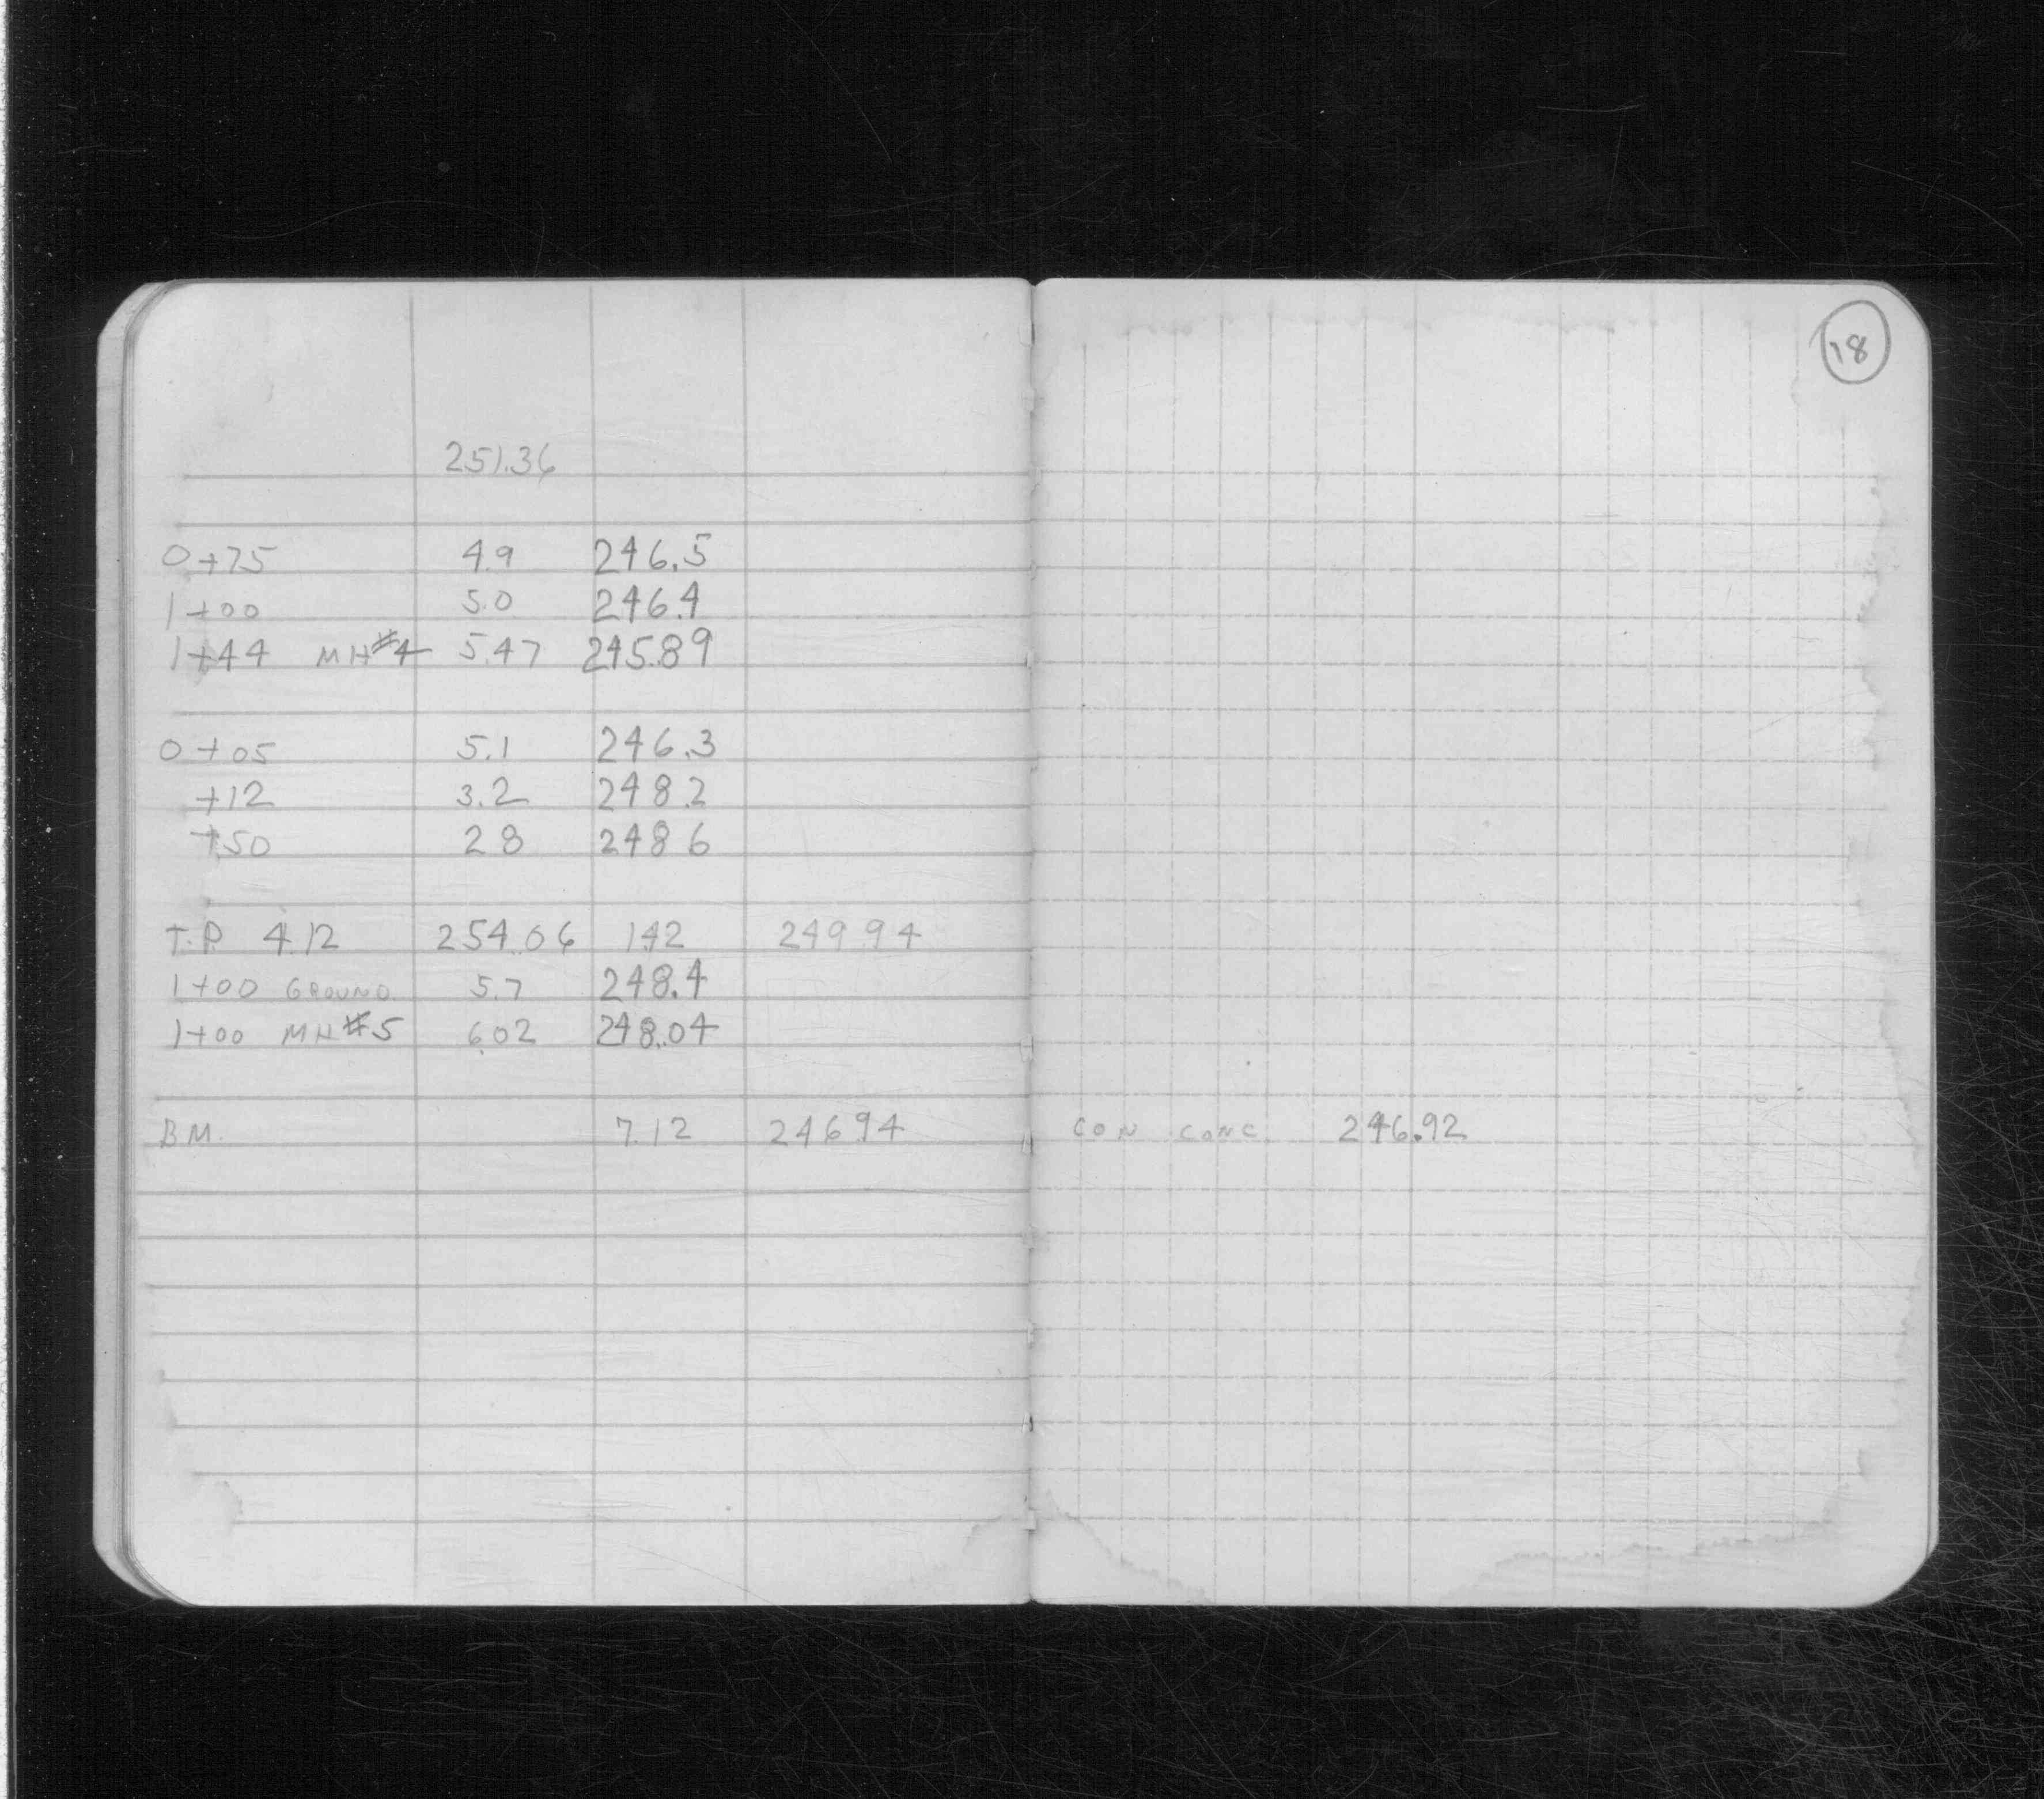 18
251.36
0+75 4.9 246.5
1+00 5.0 246.4
1+44 MH#4 5.47 245.89
0+05 5.1 246.3
+12 3.2 248.2
+50 2 8 248 6
T.P. 4.12 254.06 1.42 249.94
1+00 GROUND 5.7 248.4
1+00 MH#5 6.02 248.04
B.M. 7.12 246 94 CON CONC. 246.92